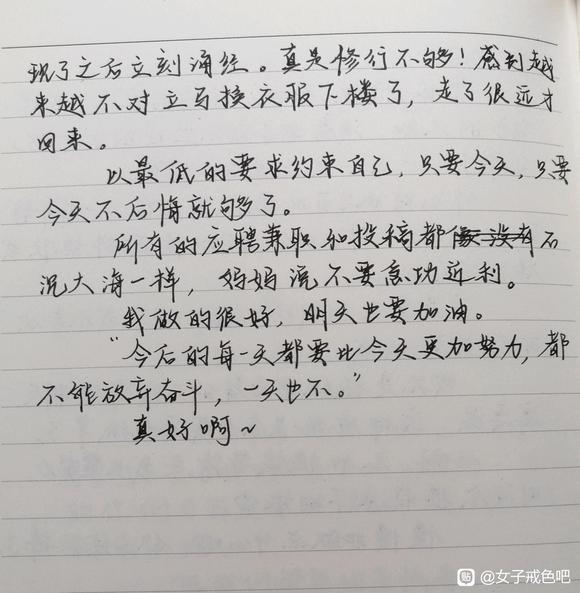 现了之后立刻诵经。真是修行不够！感到越
来越不对立马换衣服下楼了，走了很远才
回来。
以最低的要求约束自己，只要今天，只要
今天不后悔就够了。
所有的应聘兼职和投稿都像没有石
沉大海一样，妈妈说不要急功近利。
我做的很好，明天也要加油。
“今后的每一天都要比今天更加努力，都
不能放弃奋斗，一天也不。”
真好啊~
贴 @女子戒色吧